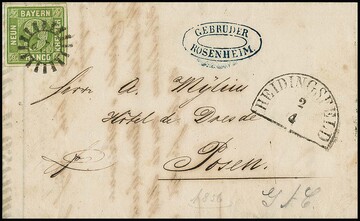 BAYERN
NEUN
FRANCO
GEBRÜDER
ROSENHEIM
HEIDINGSFELD
2
4
Herrn A. Mylius
Hôtel de Dresde
Posen.